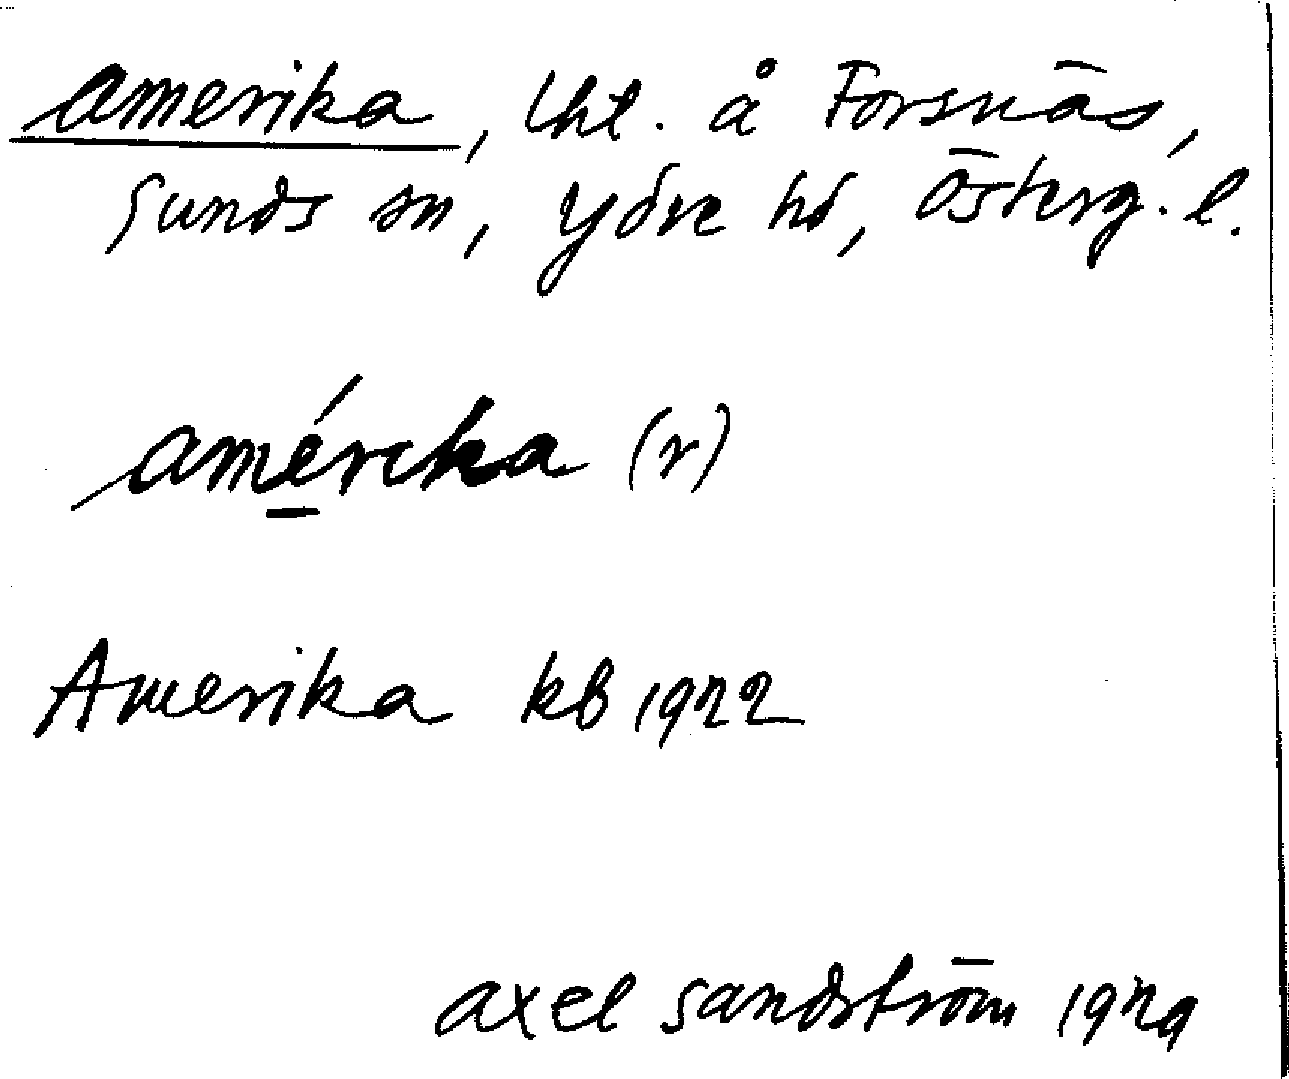 Amerika, lht. å Forsnäs,
Sunds sn, Ydre hd, Österg. l.
amérika (r)
Amerika kb 1922
Axel Sandström 1929